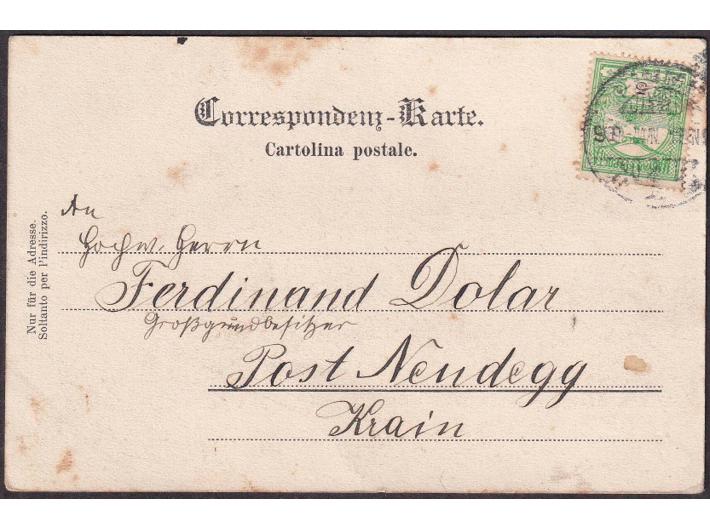 Correspondenz-Karte.
Cartolina postale.
An
Hochw. Herrn
Ferdinand Dolar
Großgrundbesitzer
Post Neudegg
Krain
Nur für die Adresse.
Soltanto per l'indirizzo.